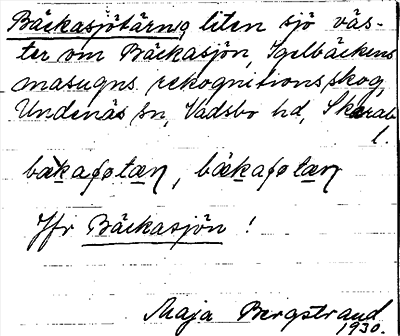 Bäckasjötärn, liten sjö väs-
ter om Bäckasjön, Igelbäckens
masugns rekognitionsskog,
Undenäs sn, Vadsbo hd, Skarab.
l.
Jfr Bäckasjön !
Maja Bergstrand
1930.